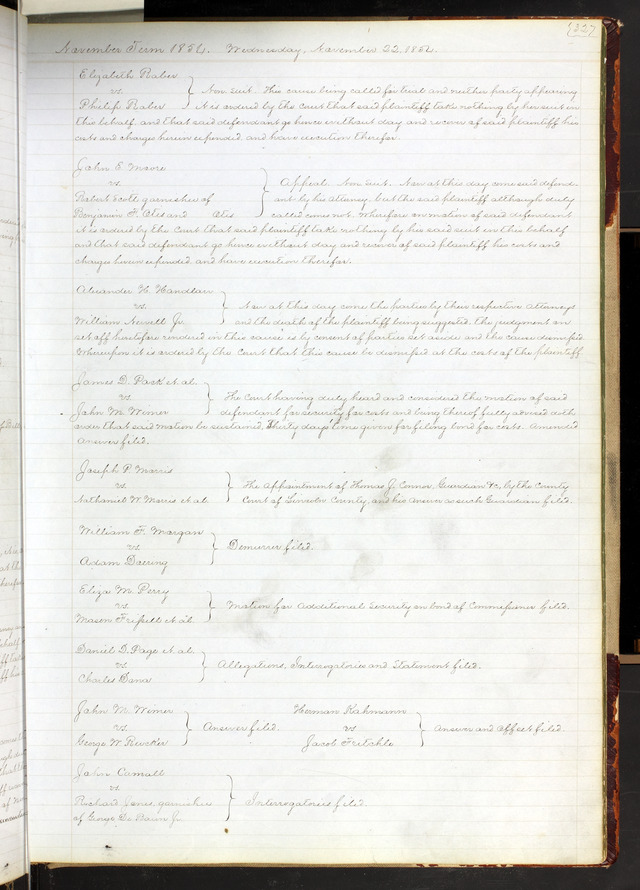 327
November Term 1854. Wednesday, November 22, 1854.
Elizabeth Raber
vs
Philip Raber
Non suit. This cause being called for trial and neither party appearing
it is ordered by the court that said plaintiff take nothing by her suit in
this behalf and that said defendant go hence without day and recover of said plaintiff his
costs and charges herein expended, and have execution therefor.
John E Moore
vs.
Robert Scott garnishee of
Benjamin F. Ates and Ates
Appeal. Non suit. Now at this day come said defend-
ant by his attorney, but the said plaintiff although duly
called comes not. Wherefore on motion of said defendant
it is ordered by the Court that said plaintiff take nothing by his said suit in this behalf
and that said defendant go hence without day and recover of said plaintiff his costs and
charges herein expended, and have execution therefor.
Alexander H. Handlan
vs.
William Newell Jr.
Now at this day come the parties by their respective attorneys
and the death of the plaintiff being suggested, the judgment on
set off heretofore rendered in this cause is by consent of parties set aside and the cause dismissed.
Whereupon it is ordered by the Court that this cause be dismissed at the costs of the plaintiff
James D. Pack et al.
vs
John M. Wimer
The Court having duly heard and considered the motion of said
defendant for security for costs and being thereof fully advised doth
order that said motion be sustained, thirty days time given for filing bond for costs. Amended
Answer filed.
Joseph P. Morris
vs
Nathaniel W Morris et al
The Appointment of Thomas J. Connor, Guardian &c, by the County
Court of Lincoln County, and his answer as such Guardian filed.
William F. Morgan
vs
Adam Doering
Demurrer filed.
Eliza M. Perry
vs
Mason Frissell et al
Motion for Additional Security on bond of Commissioner filed.
Daniel D. Page et al.
vs
Charles Dana
Allegations, Interrogatories and Statement filed.
John M. Wimer
vs.
George W Ruecker
Answer filed.
Herman Kahmann
vs
Jacob Fritchle
Answer and offset filed
John Camall
vs.
Richard Jones, garnishee
of George De Baun Jr.
Interrogatories filed.